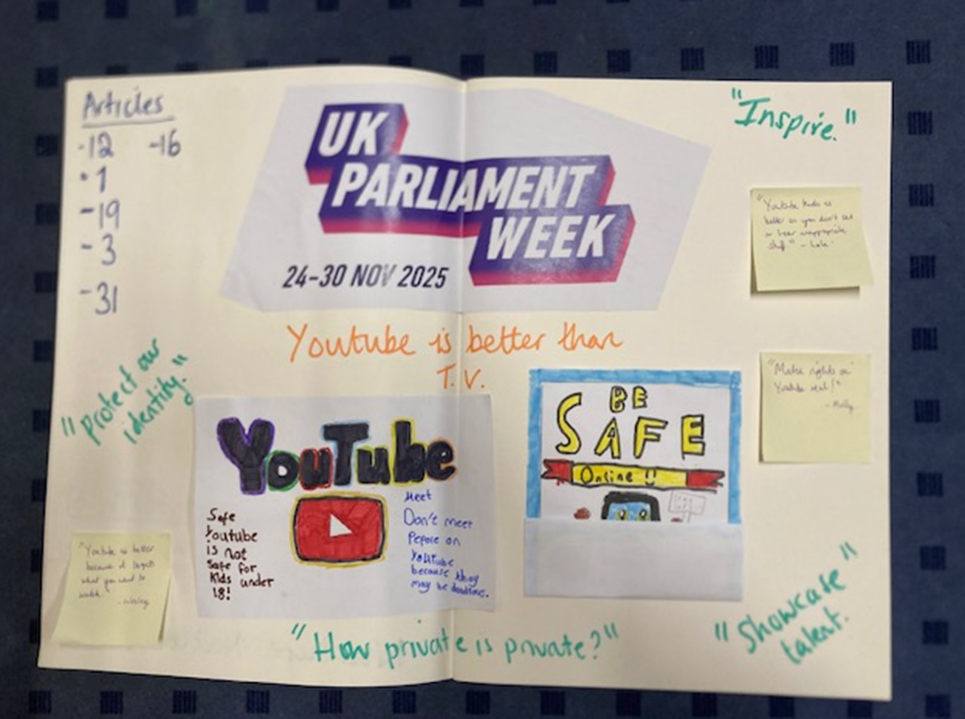 Articles
-12 -16
•1
-19
-3
-31
UK
PARLIAMENT
WEEK
24-30 NOV 2025
"Inspire."
"Youtube kids is
better as you don't see
or hear inappropriate
stuff" - Lola
Youtube is better than
T.V.
"Protect our
identity."
YouTube
Safe
Youtube
is not
safe for
Kids under
18!
Meet
Don't meet
Pepore on
Youtube
because they
may be
BE
SAFE
Online !!
"Make rights on
Youtube real!"
- Molly
"Youtube is better
because it
what you want to
watch
"How private is private?"
"Showcase"
talent.